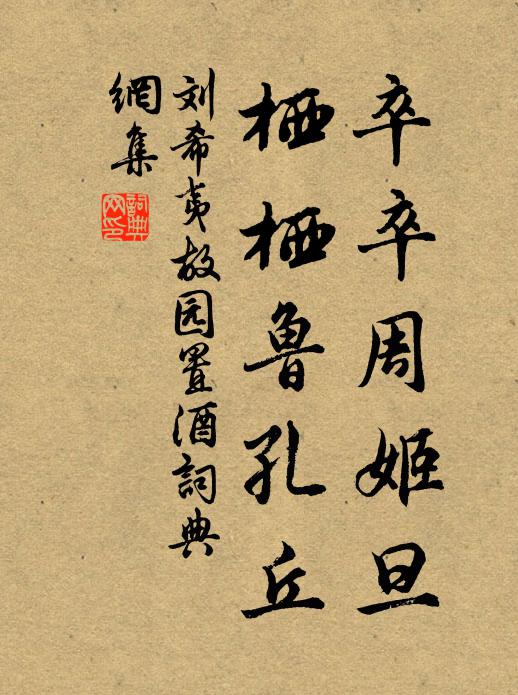 卒卒周姬旦
栖栖鲁孔丘
刘希夷故园置酒詞典
網集
詞典網印